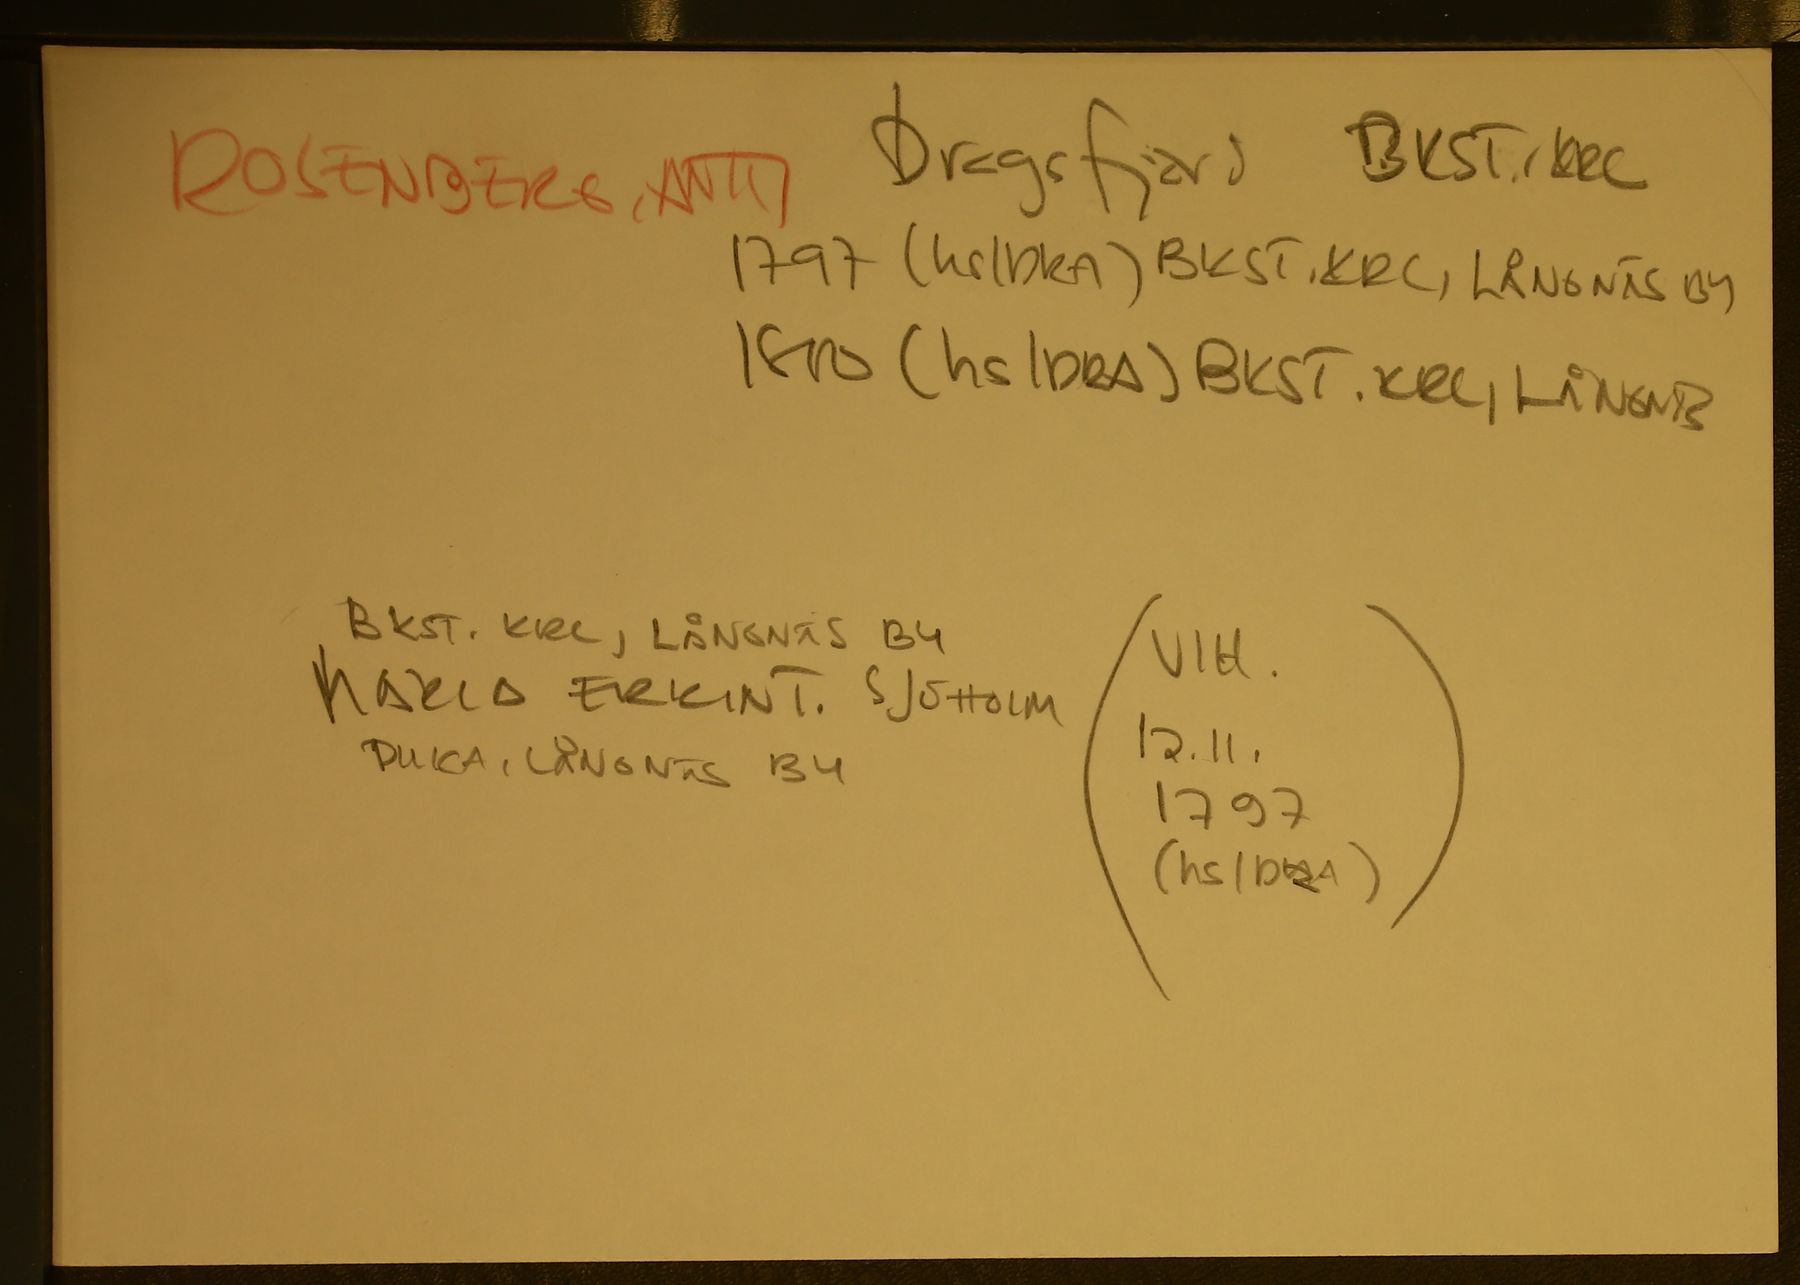 ROSENBERG, ANTTI Dragsfjärd BKST. KRC
1797 (hs/DRA) BKST. KRC, LÅNGNÄS BY
1800 (hs/DRA) BKST. KRC, LÅNGNÄS
BKST. KRC, LÅNGNÄS BY
MARIA ERKINT. SJÖHOLM
PIIKA, LÅNGNÄS BY
VIH.
12.11.
1797
(hs/DRA)